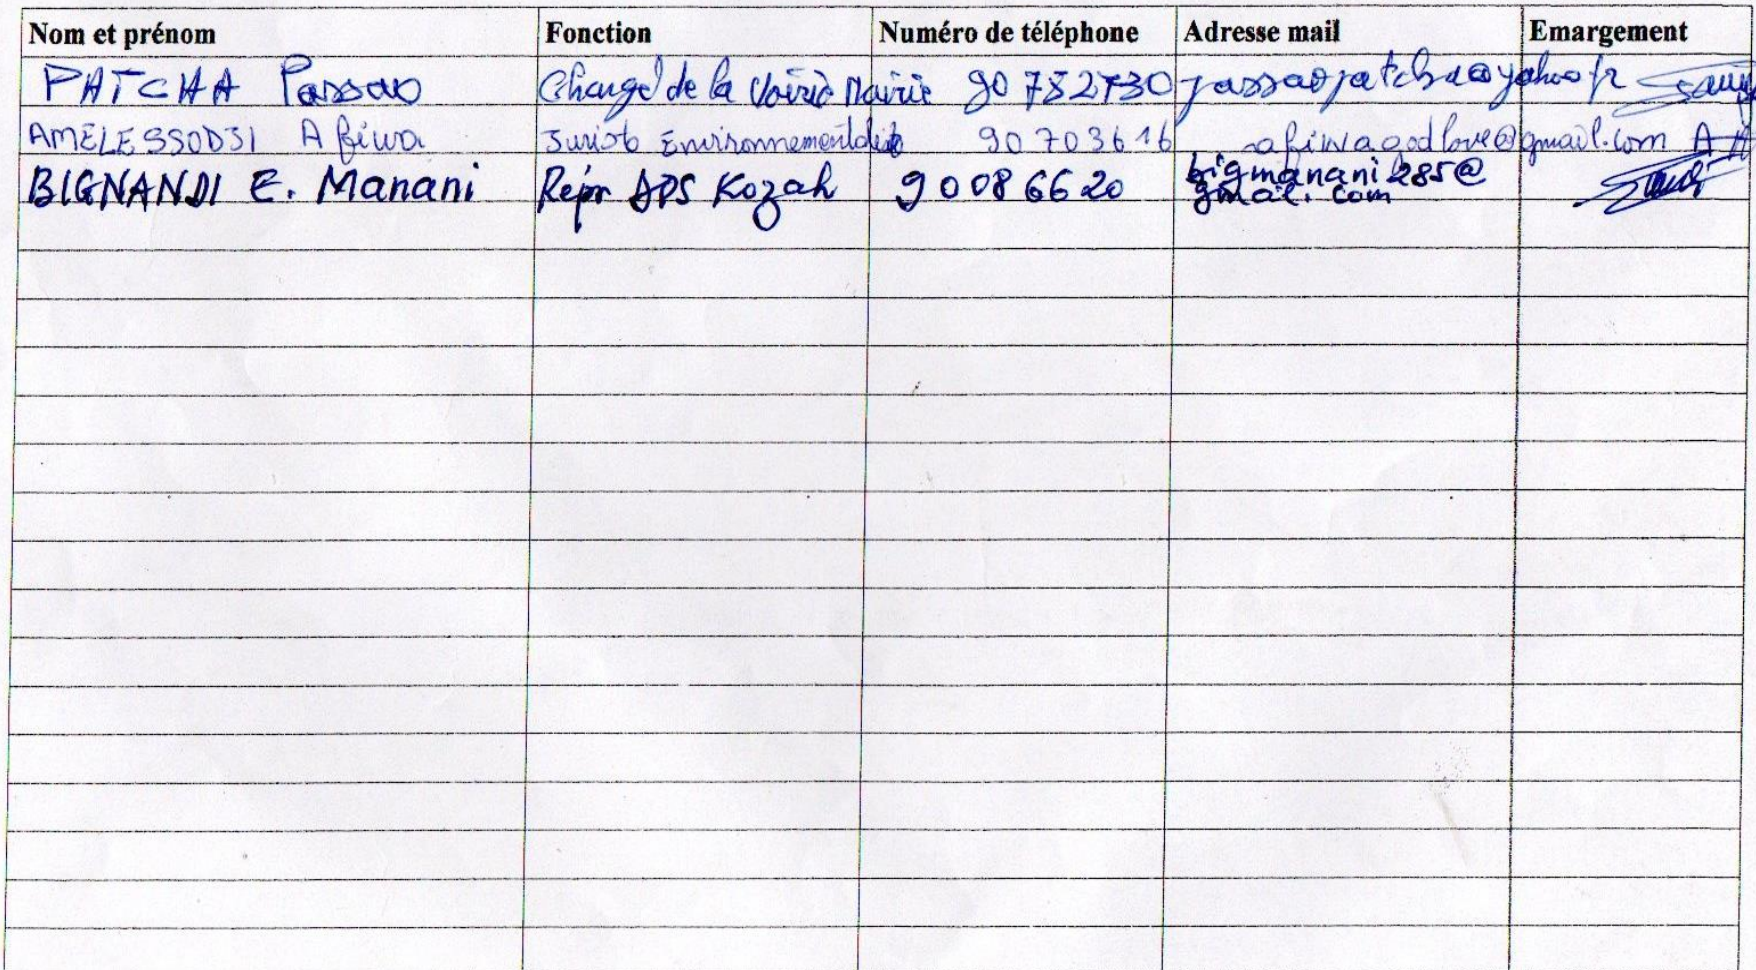 Nom et prénom Fonction Numéro de téléphone Adresse mail Emargement
PATCHA Passao Chargé de la Voirie Mairie 90 782730 passaopatcha@yahoo fr
AMELESSODJI Afiwa Juriste Environnementaliste 90 703616 afiwagodlove@gmail.com
BIGNANDI E. Manani Repr APS Kozah 90086620 bigmanani285@
gmail.com